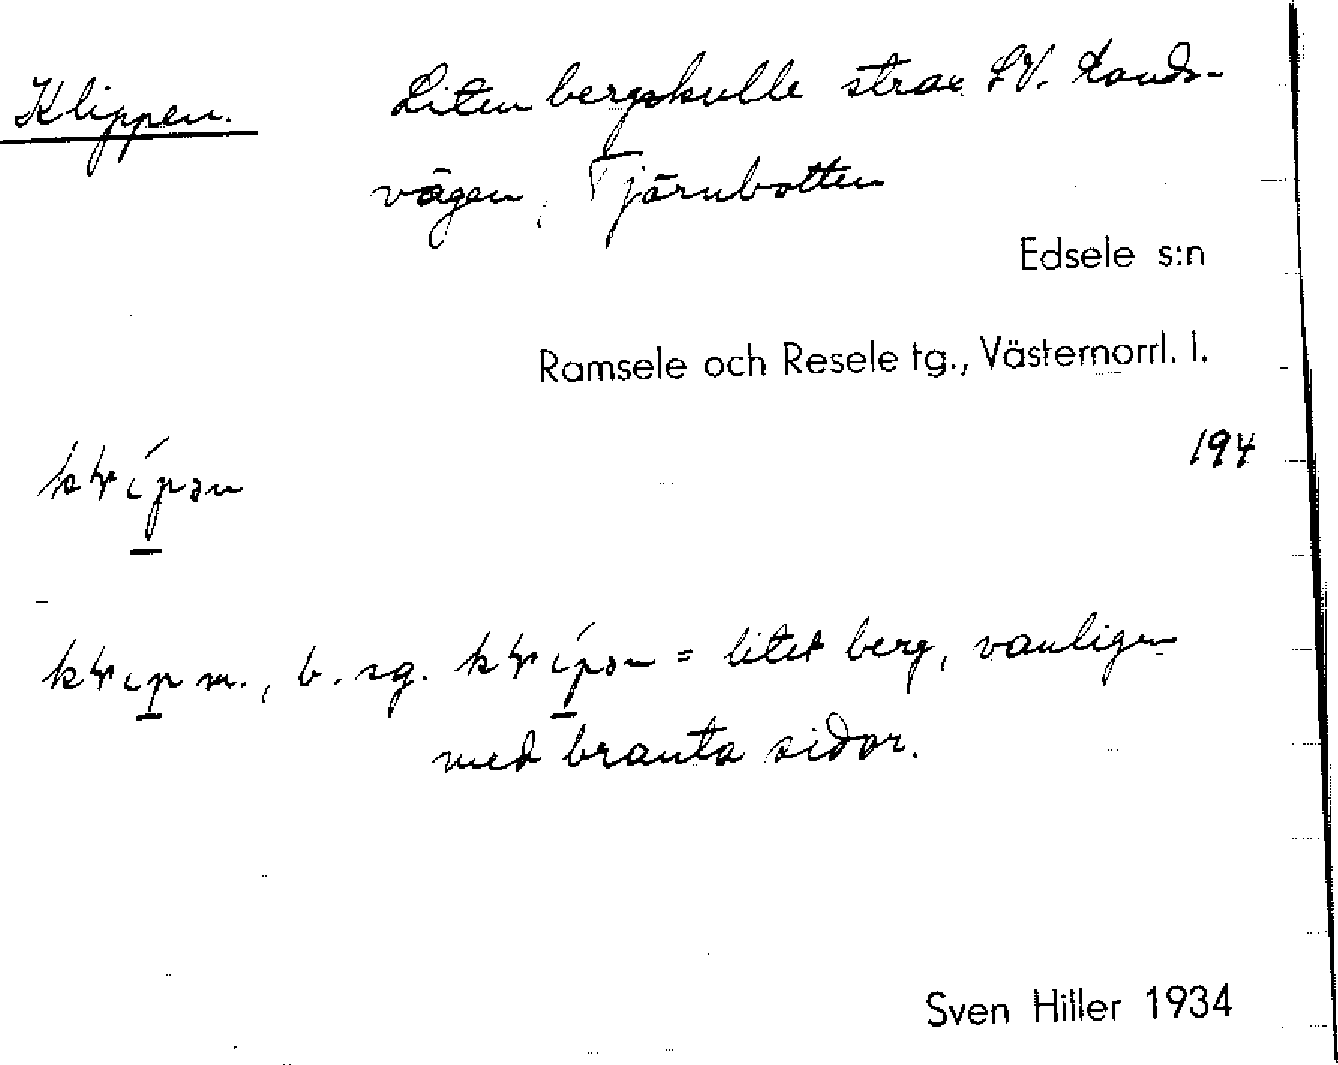 Klippen. Liten bergskulle strax SV. lands-
vägen, Tjärnbotten
Edsele s:n
Ramsele och Resele tg., Västernorrl. l.
194
m., b. sg. = litet berg, vanligen
med branta sidor.
Sven Hiller 1934